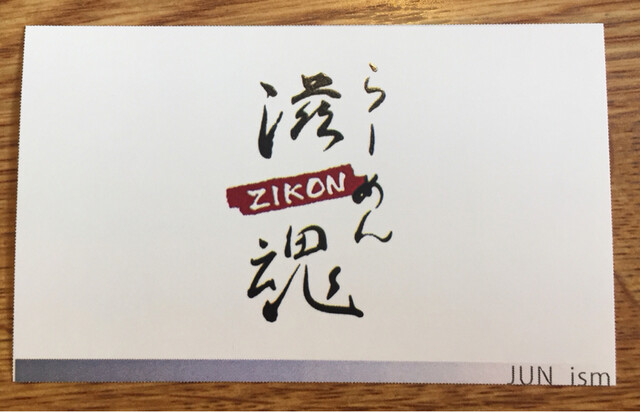 らーめん
滋魂
ZIKON
JUN_ism